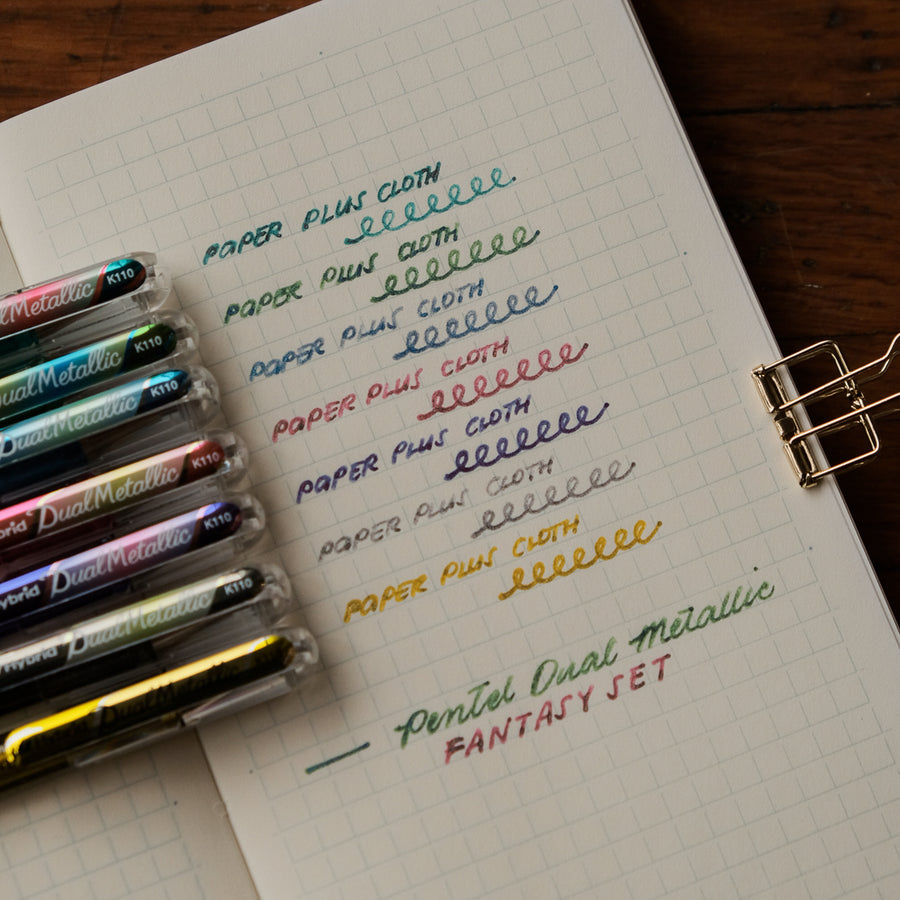 PAPER PLUS CLOTH
PAPER PLUS CLOTH
PAPER PLUS CLOTH
PAPER PLUS CLOTH
PAPER PLUS CLOTH
PAPER PLUS CLOTH
PAPER PLUS CLOTH
— Pentel Dual Metallic
FANTASY SET
alMetallic K110
ualMetallic K110
DualMetallic K110
brid DualMetallic K110
ybrid DualMetallic K110
Hybrid DualMetallic K110
DualMetallic